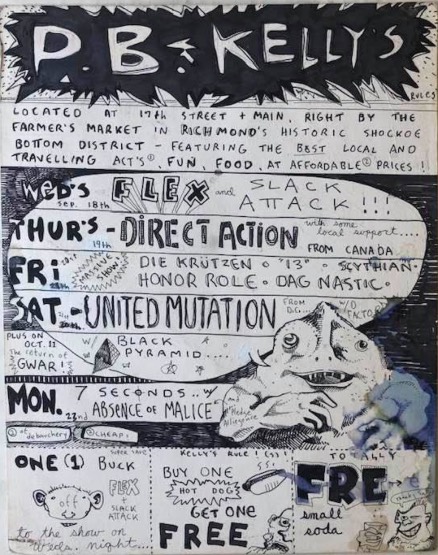 P.B. & KELLY'S
RULES
LOCATED AT 17th STREET + MAIN, RIGHT BY THE
FARMER'S MARKET IN RICHMOND'S HISTORIC SHOCKOE
BOTTOM DISTRICT - FEATURING THE BEST LOCAL AND
TRAVELLING ACT'S①, FUN, FOOD, AT AFFORDABLE② PRICES!
WED'S FLEX and SLACK
sep. 18th ATTACK!!!
THUR'S - DIRECT ACTION with some local support....
19th FROM CANADA
FRI DIE KRÜTZEN o "13" o SCYTHIAN·
HONOR ROLE · DAG NASTIC·
SAT - UNITED MUTATION FROM D.C.
PLUS ON
OCT. 11
The return of
GWAR!
W/ BLACK
PYRAMID....
MON. 7 SECONDS..w/
22nd ABSENCE OF MALICE
① of debauchery ② CHEAP!
ONE (1) BUCK
off
FLEX
SLACK
ATTACK
to the show on
Weds. night...
KELLY'S RULE!
BUY ONE
HOT DOG
GET ONE
FREE
TOTALLY
FRE
small
soda